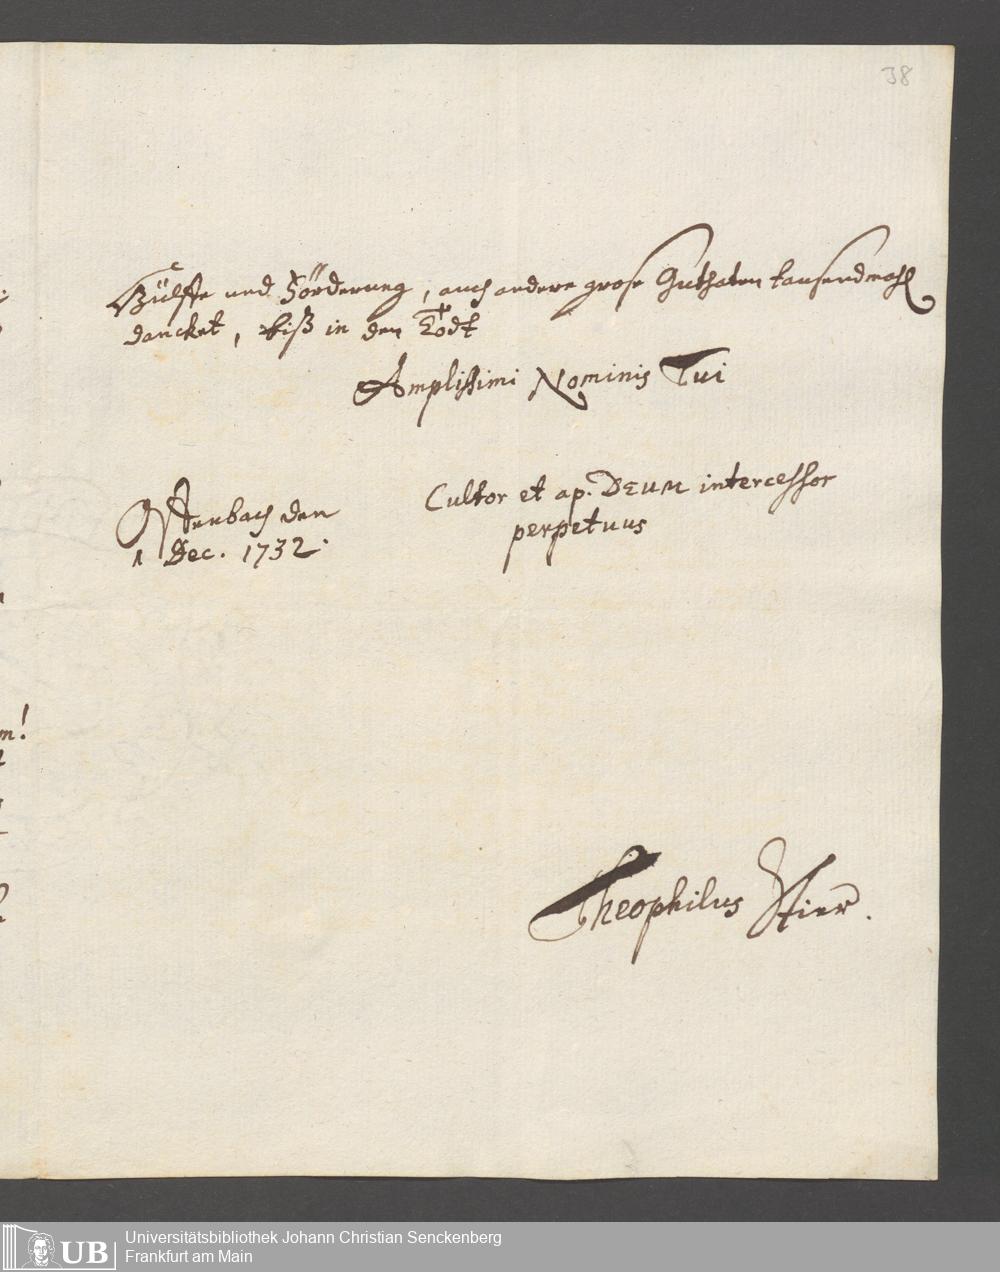 38
Hülffe und Förderung, auch andere grose Guthaten tausendmahl
dancket, biß in den Todt
Amplissimi Nominis Tui
Cultor et ap. DEUM intercessor
perpetuus
den
1 Dec. 1732.
Theophilus Stier.
UB
Universitätsbibliothek Johann Christian Senckenberg
Frankfurt am Main